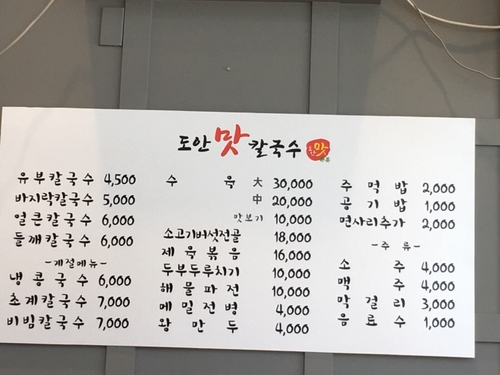 도안 맛 칼국수
유부칼국수 4,500
바지락칼국수 5,000
얼큰칼국수 6,000
들깨칼국수 6,000
-계절메뉴-
냉콩국수 6,000
초계칼국수 7,000
비빔칼국수 7,000
수육 大 30,000
中 20,000
맛보기 10,000
소고기버섯전골 18,000
제육볶음 16,000
두부두루치기 10,000
해물파전 10,000
메밀전병 4,000
왕만두 4,000
주먹밥 2,000
공기밥 1,000
면사리추가 2,000
-주류-
소주 4,000
맥주 4,000
막걸리 3,000
음료수 1,000